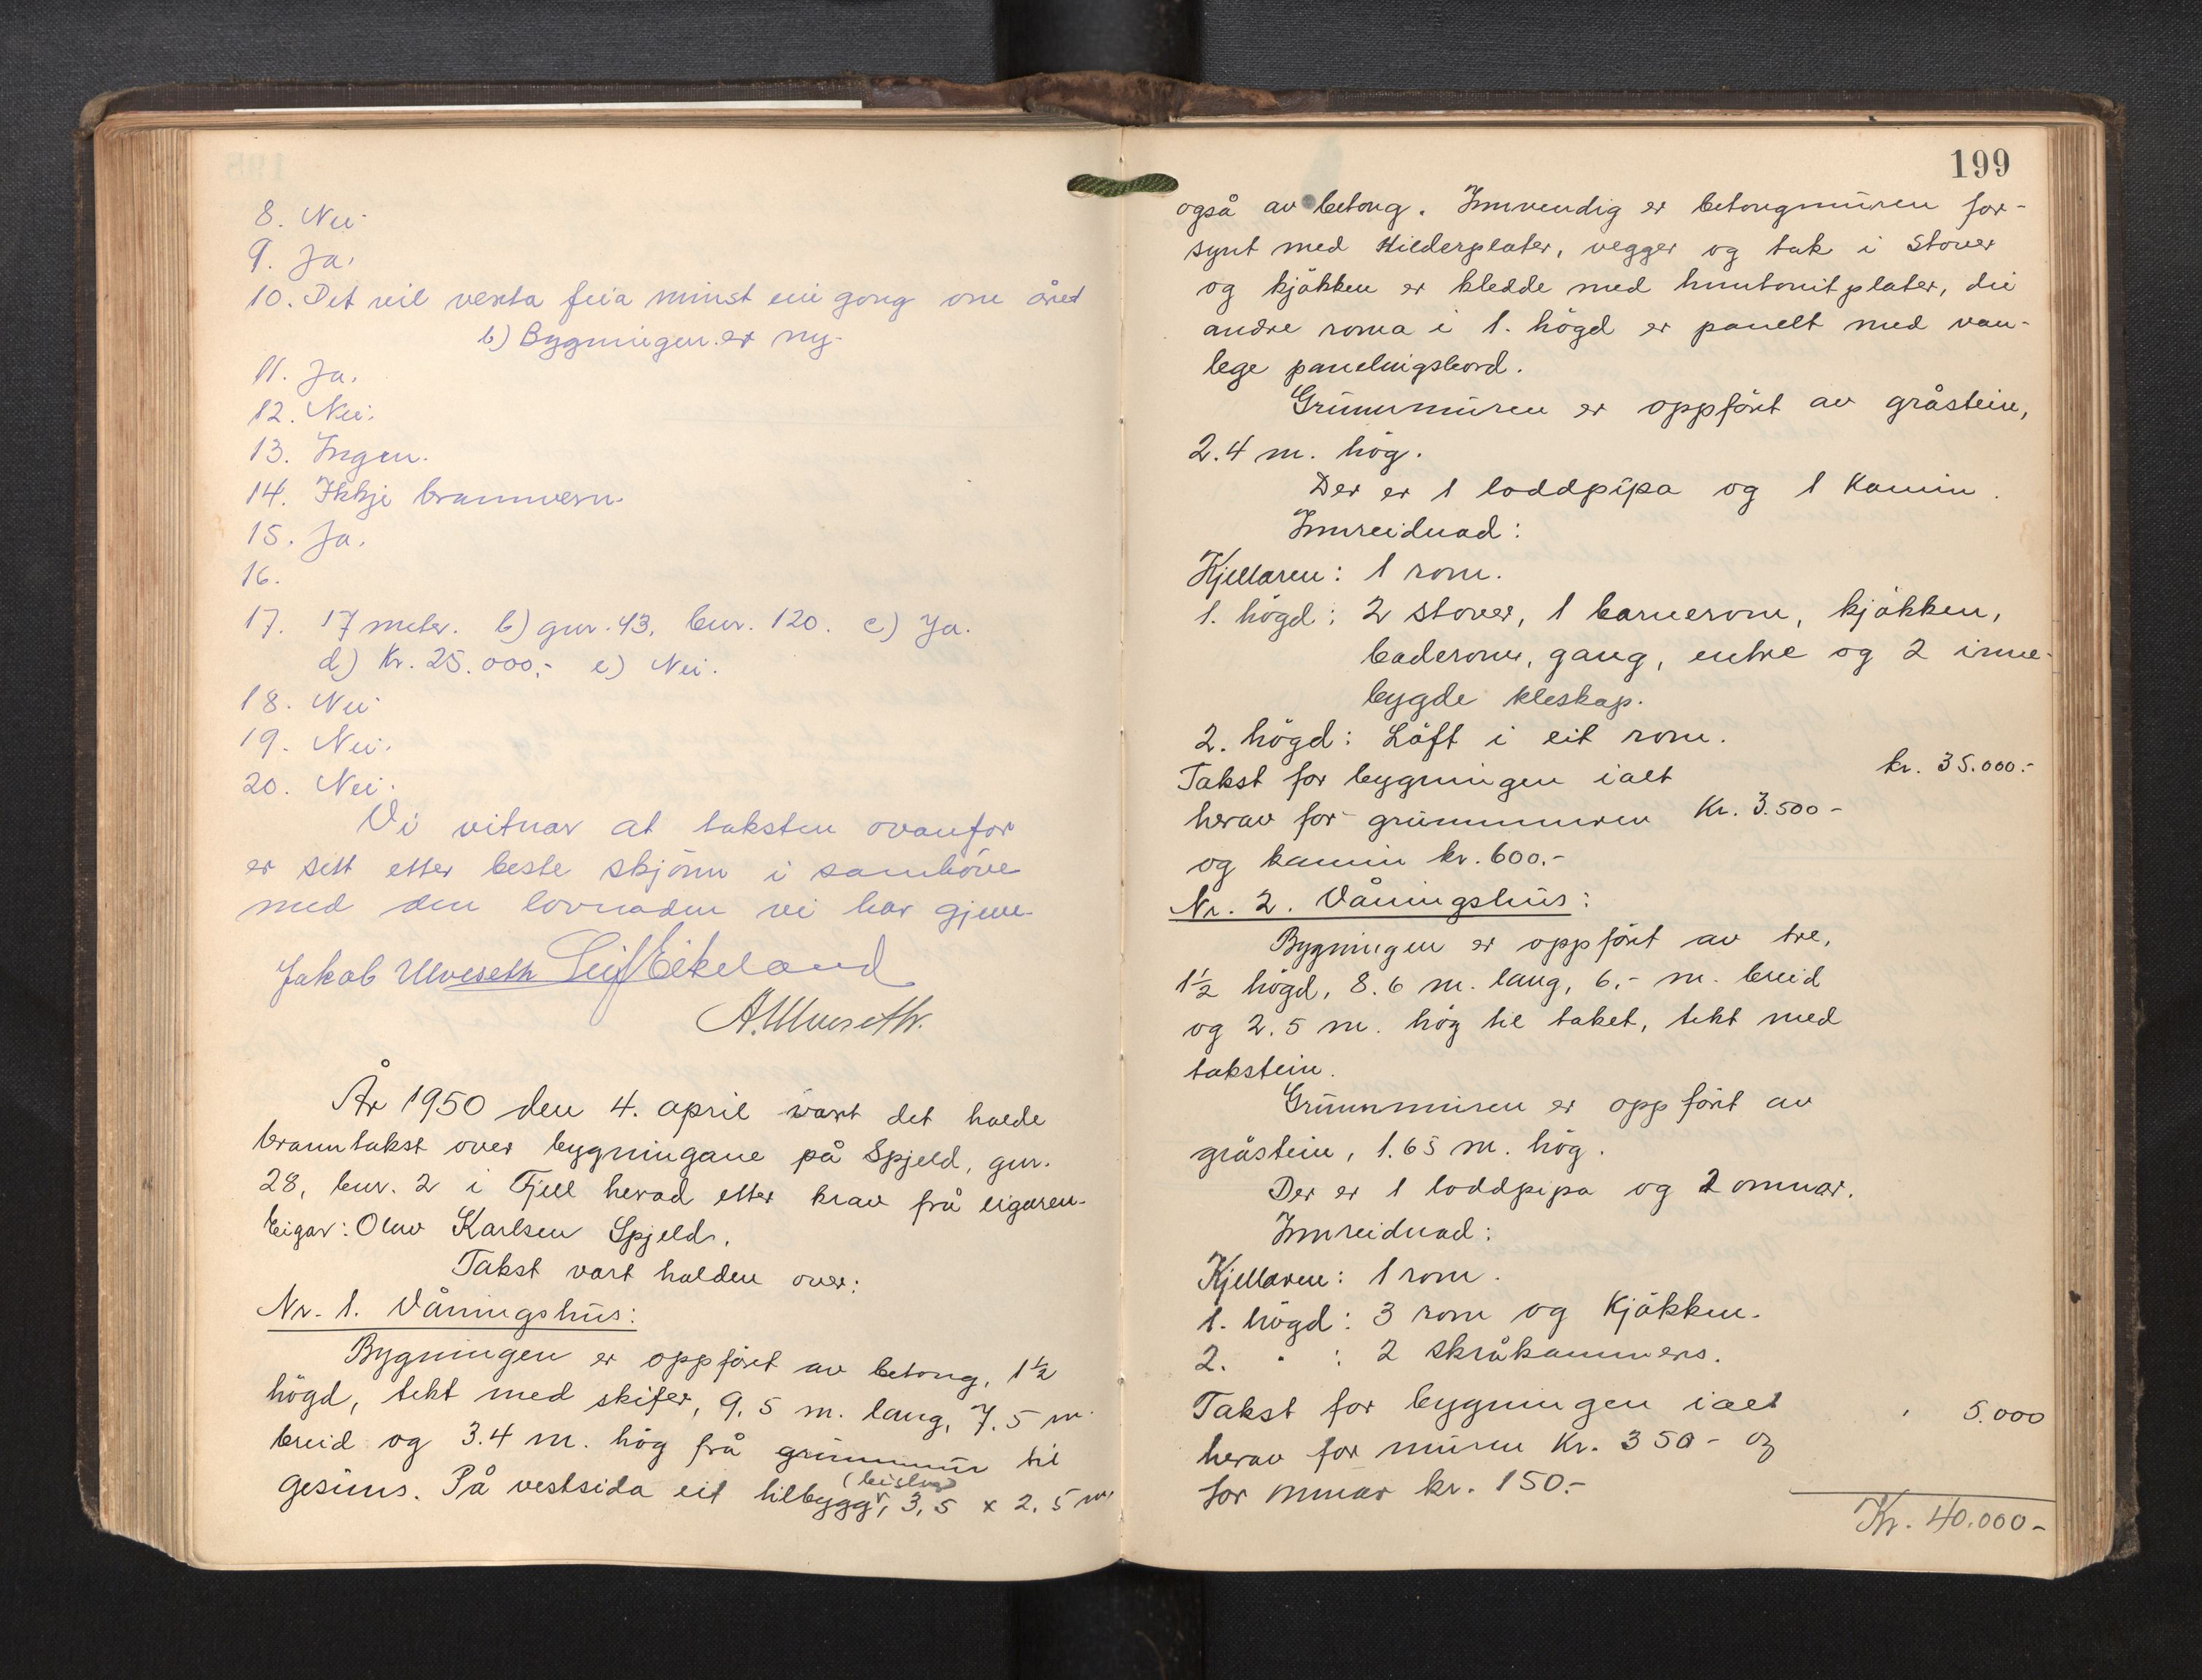 8. Nei
9. Ja.
10. Det vil verta feia minst ein gong om året
b) Bygningen er ny.
11. Ja.
12. Nei.
13. Ingen.
14. Ikkje brannvern.
15. Ja.
16.
17. 17 meter. b) gnr. 43, bnr. 120. c) Ja.
d) Kr. 25.000,- e) Nei.
18. Nei
19. Nei.
20. Nei.
Vi vitnar at taksten ovanfor
er sett etter beste skjönn i samhöve
med den lovnaden vi har gjeve.
Jakob Ulveseth Leif Eikeland
A. Ulveseth.
År 1950 den 4. april vart det halde
branntakst over bygningane på Spjeld, gnr.
28, bnr. 2 i Fjell herad etter krav frå eigaren.
Eigar: Olav Karlsen Spjeld.
Takst vart halden over:
Nr. 1. Våningshus:
Bygningen er oppfört av betong, 1½
högd, tekt med skifer, 9,5 m. lang, 7.5 m.
breid og 3.4 m. hög frå grunnmur til
gesims. På vestsida eit tilbygg, 3,5 x 2,5 m.
(beislag)
199
også av betong. Innvendig er betongmuren for-
synt med Hilderplater, vegger og tak i stover
og kjökken er kledde med huntonitplater, dei
andre roma i 1. högd er panelt med van-
lege panelingsbord.
Grunnmuren er oppfört av gråstein,
2.4 m. hög.
Der er 1 loddpipa og 1 kamin.
Innreidnad:
Kjellaren: 1 rom.
1. högd: 2 stover, 1 barnerom, kjökken,
baderom, gang, entre og 2 inne-
bygde kleskap.
2. högd: Löft i eit rom.
Takst for bygningen ialt kr. 35.000.-
herav for grunnmuren Kr. 3.500-
og kamin kr. 600.-
Nr. 2. Våningshus:
Bygningen er oppfört av tre,
1½ högd, 8.6 m. lang, 6,- m. breid
og 2.5 m. hög til taket, tekt med
takstein.
Grunnmuren er oppfört av
gråstein, 1.65 m. hög.
Der er 1 loddpipa og 2 omnar.
Innreidnad:
Kjellaren: 1 rom.
1. högd: 3 rom og kjökken.
2. " : 2 skråkammers.
Takst for bygningen ialt " 5.000
herav for muren Kr. 350- og
for omnar kr. 150.-
Kr. 40.000-